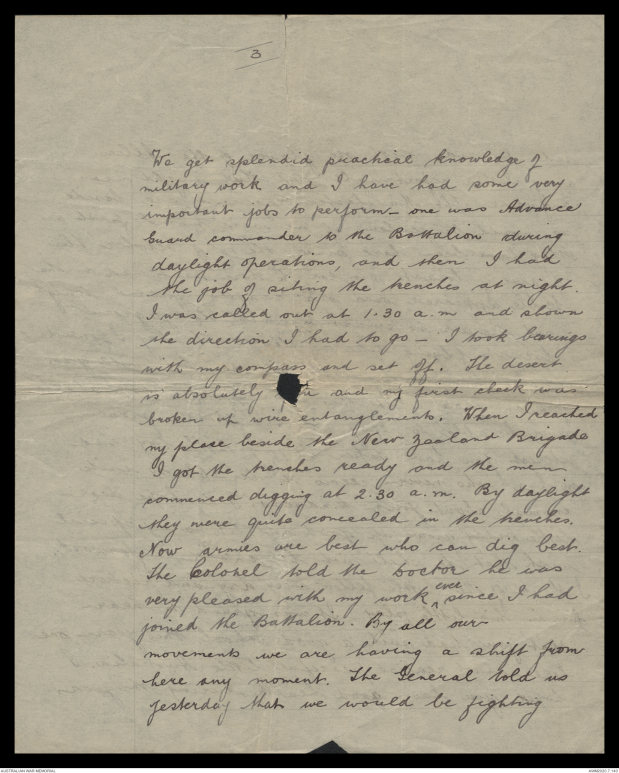 3
We get splendid practical knowledge of
military work and I have had some very
important jobs to perform - one was Advance
Guard commander to the Battalion during
daylight operations, and then I had
the job of siting the trenches at night.
I was called out at 1.30 a.m and shown
the direction I had to go - I took bearings
with my compass and set off. The desert
is absolutely and my first check was
broken up wire entanglements. When I reached
my place beside the New Zealand Brigade
I got the trenches ready and the men
commenced digging at 2.30 a.m. By daylight
they were quite concealed in the trenches.
Now armies are best who can dig best.
The Colonel told the Doctor he was
very pleased with my work ever since I had
joined the Battalion. By all our
movements we are having a shift from
here any moment. The General told us
yesterday that we would be fighting
AUSTRALIAN WAR MEMORIAL